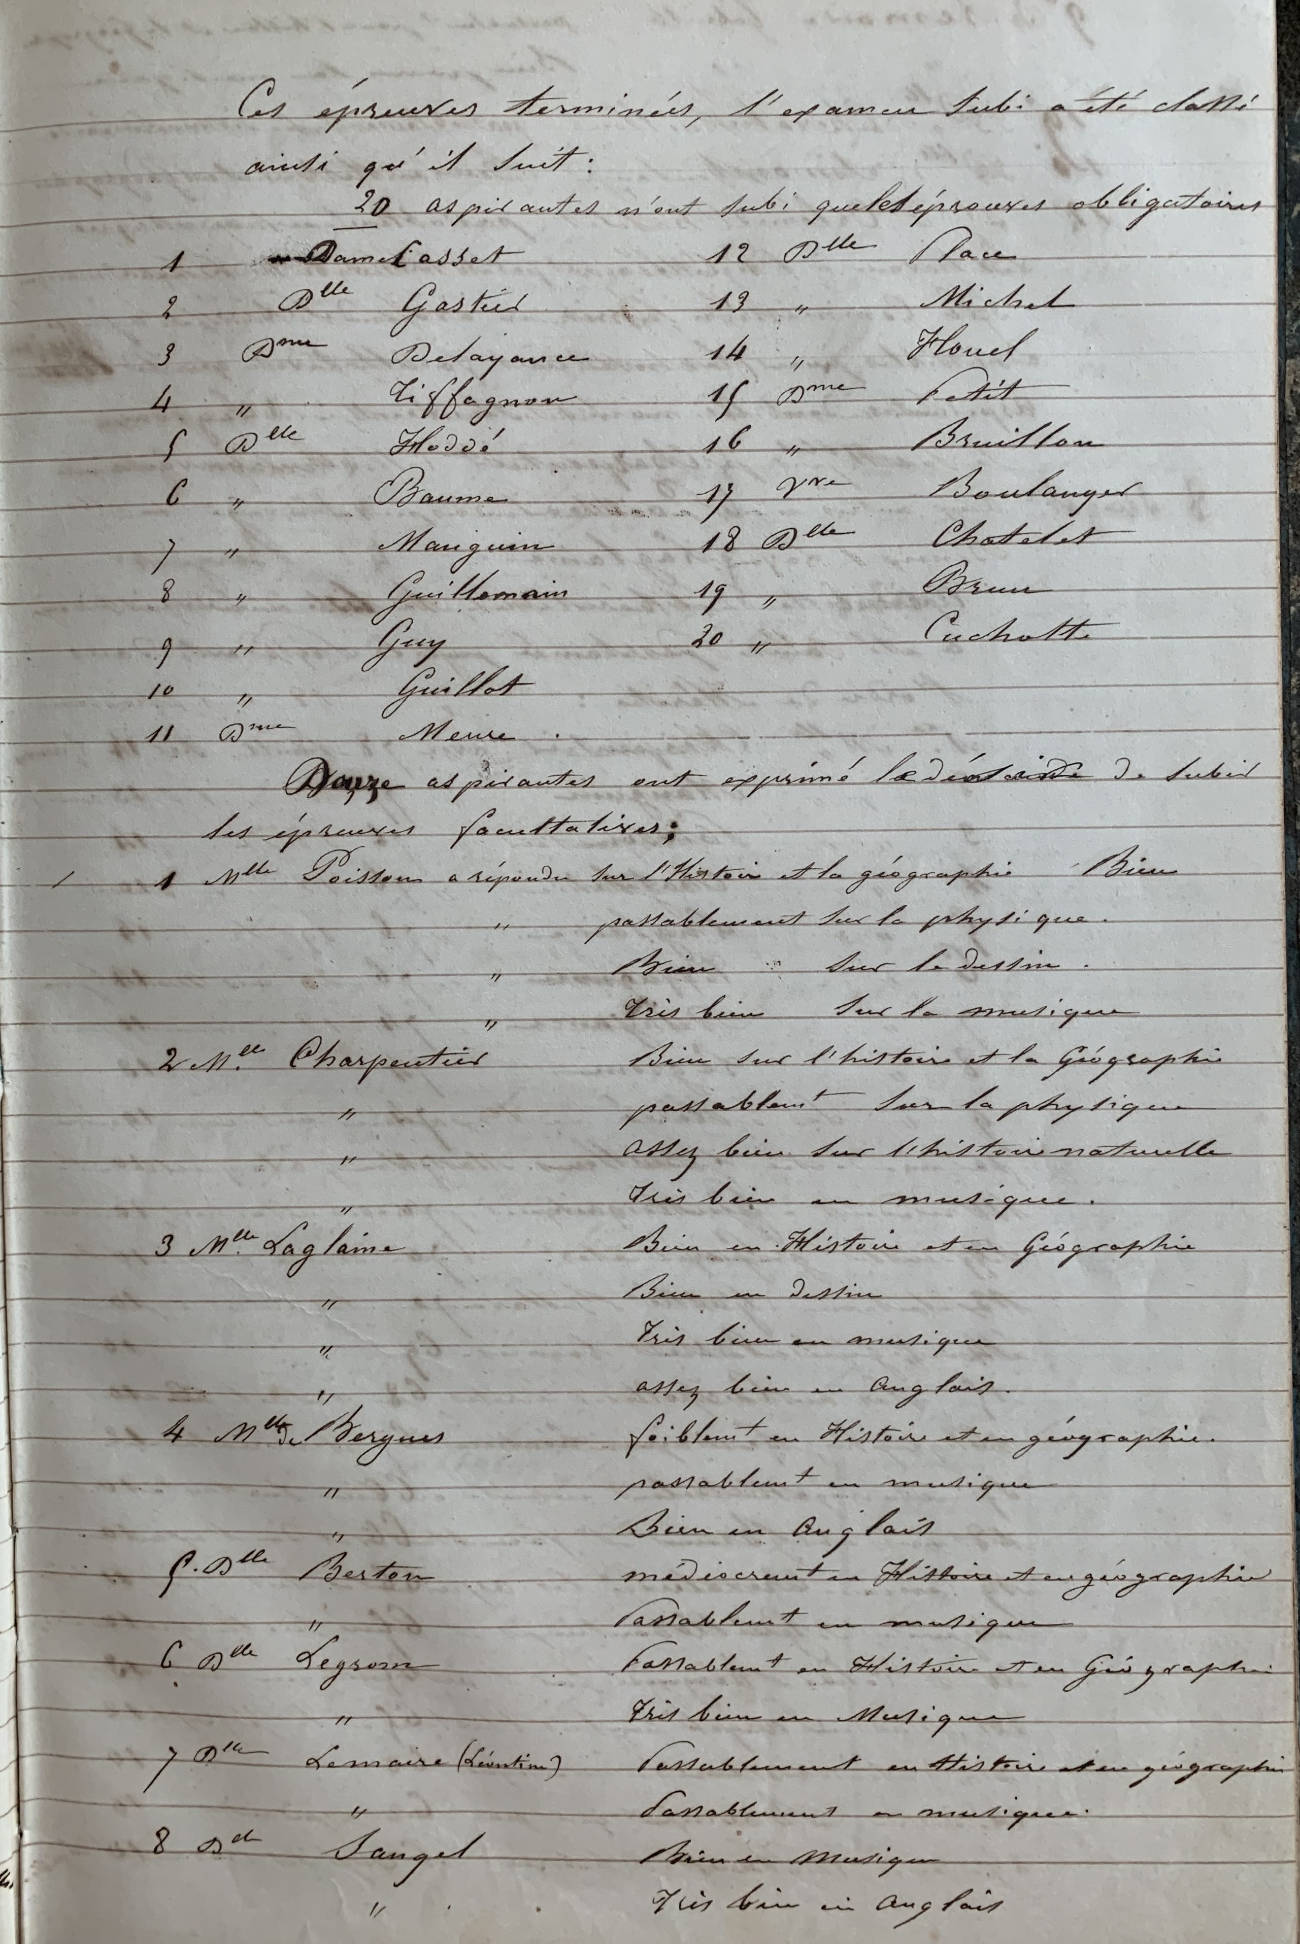 Ces épreuves terminées, l'examen subi a été classé
ainsi qu'il suit:
20 aspirantes n'ont subi que les épreuves obligatoires
1 Dame Casset
2 Dlle Gastier
3 Dme Delayance
4 " Tiffagnon
5 Dlle Hoddé
6 " Baume
7 " Mauguin
8 " Guillemain
9 " Guy
10 " Guillot
11 Dme Meure.
12 Dlle Place
13 " Michel
14 " Houel
15 Dme Petit
16 " Bruillon
17 Vve Boulanger
18 Dlle Chatelet
19 " Brun
20 " Cuchotte
Douze aspirantes ont exprimé le désir de subir
les épreuves facultatives;
1 Mlle Poisson a répondu sur l'Histoire et la géographie Bien
" passablement sur la physique.
" Bien sur le dessin.
" Très bien sur la musique
2 Mlle Charpentier Bien sur l'histoire et la Géographie
" passablemt sur la physique
" assez bien sur l'histoire naturelle
" Très bien en musique.
3 Mlle Laglaine Bien en Histoire et en Géographie
" Bien en dessin
" Très bien en musique
" assez bien en Anglais.
4 Mlle de Bergues faiblemt en Histoire et en géographie.
" passablemt en musique
" Bien en Anglais
5. Dlle Berton médiocremt en Histoire et en géographie
" Passablemt en musique
6 Dlle Legrom Passablemt en Histoire et en Géographie
" Très bien en Musique
7 Dlle Lemaire (Léontine) Passablement en Histoire et en géographie
" Passablement en musique.
8 Dlle Sangel Bien en Musique
" Très bien en Anglais